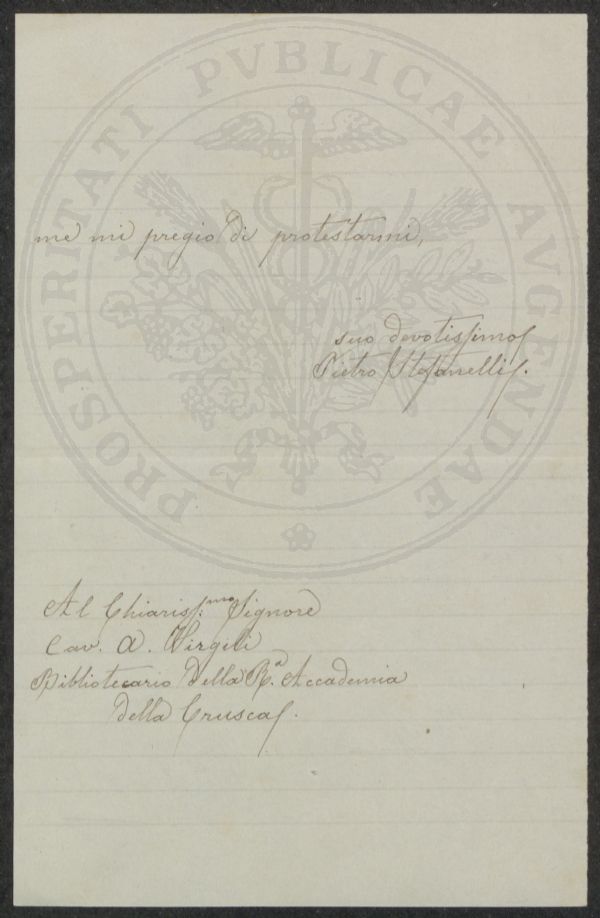 PROSPERITATI PVBLICAE AVGENDAE
me mi pregio di protestarmi,
suo devotissimo
Pietro Stefanelli.
Al Chiariss:mo Signore
Cav. A. Virgili
Bibliotecario della Ra. Accademia
della Crusca.